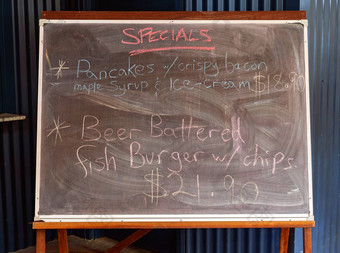 SPECIALS
* Pancakes w/ crispy bacon
maple syrup & Ice-cream $18.90
* Beer Battered
fish Burger w/ chips
$21.90